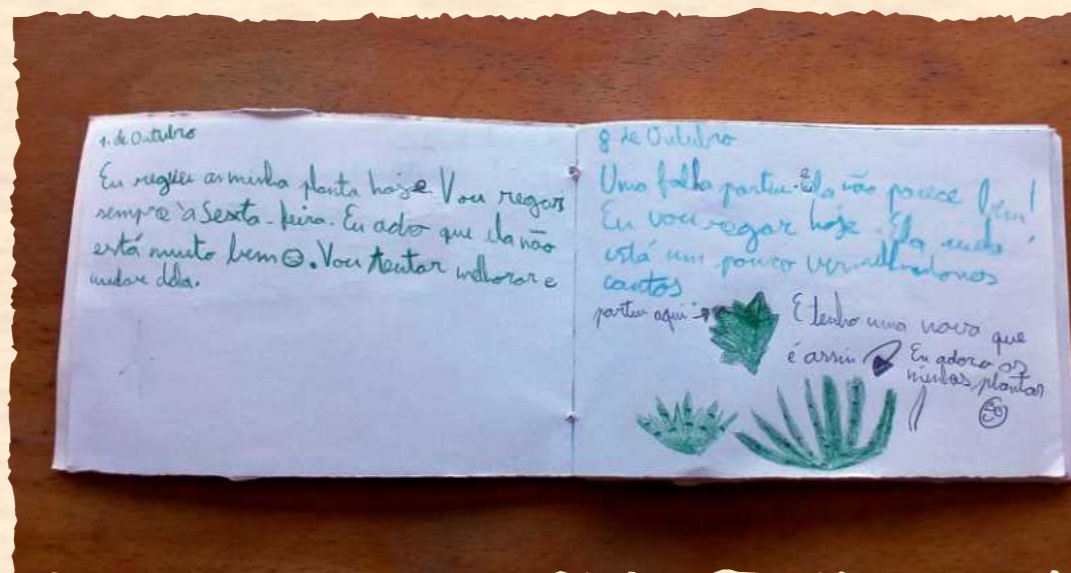 1 de Outubro
Eu reguei a minha planta hoje Vou regar
sempre à Sexta-feira. Eu acho que ela não
está muito bem. Vou tentar melhorar e
cuidar dela.
8 de Outubro
Uma folha partiu. Ela não parece bem!
Eu vou regar hoje. Ela ainda
está um pouco nos
cantos
partiu aqui
E tenho uma nova que
é assim
Eu adoro as
minhas plantas